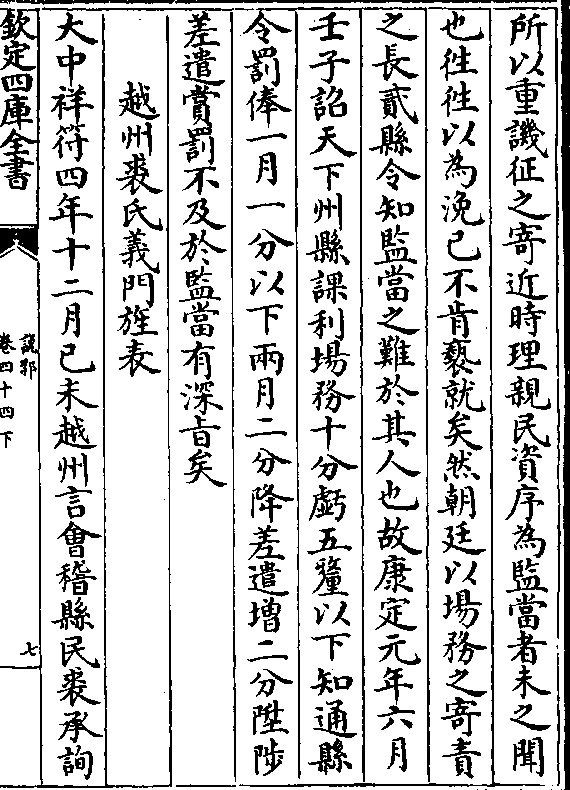 所以重譏征之寄近時理親民資序為監當者未之聞
也徃徃以為浼已不肯褻就矣然朝廷以場務之寄責
之長貳縣令知監當之難於其人也故康定元年六月
壬子詔天下州縣課利場務十分虧五釐以下知通縣
令罰俸一月一分以下兩月二分降差遣增二分陞陟
差遣賞罰不及於監當有深㫖矣
越州裘氏義門旌表
大中祥符四年十二月已未越州言會稽縣民裘承詢
欽定四庫全書
說郛
卷四十四下
七